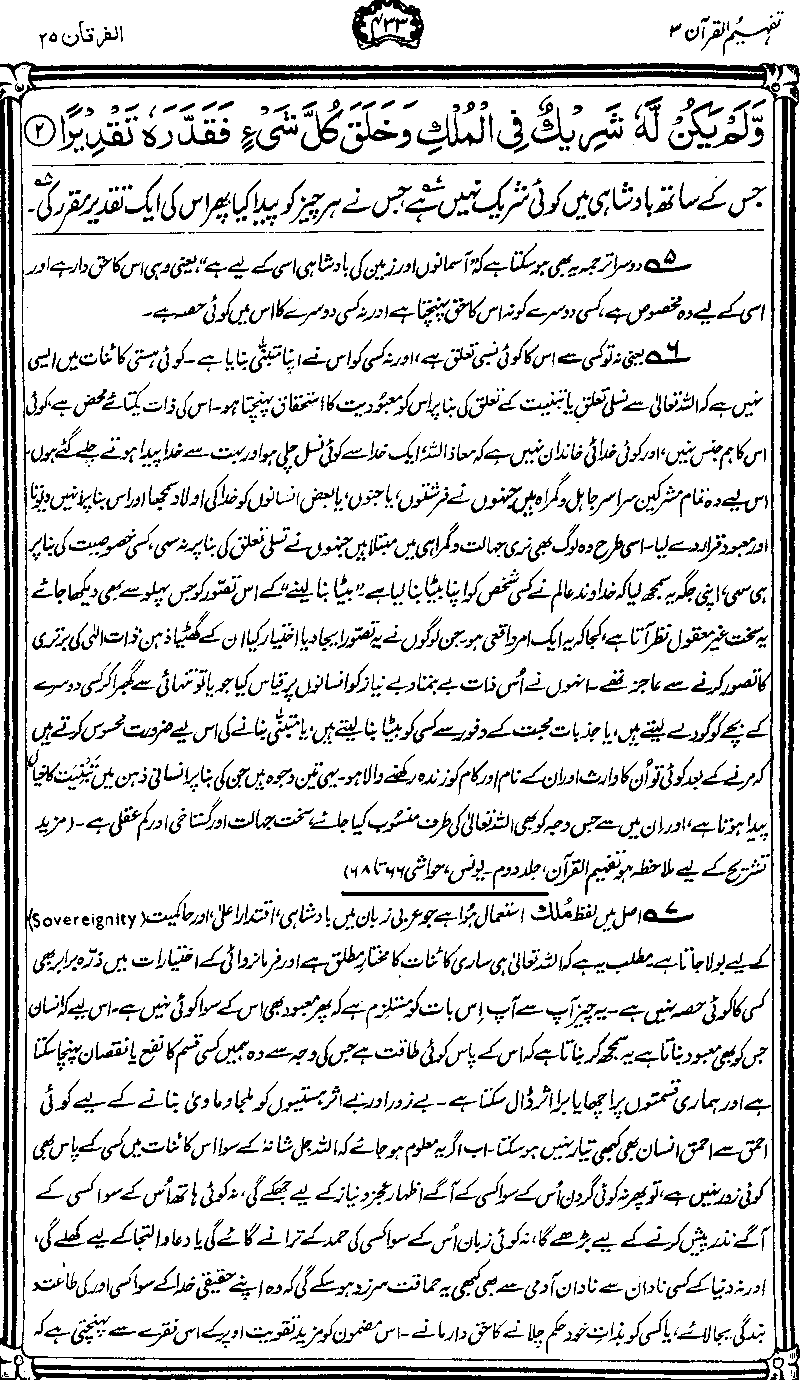 تفہیم القرآن ۳
۴۳۳
الفرقان ۲۵
وَّلَمْ يَكُنْ لَّهٗ شَرِيْكٌ فِى الْمُلْكِ وَخَلَقَ كُلَّ شَىْءٍ فَقَدَّرَهٗ تَقْدِيْرًا ﴿۲﴾
جس کے ساتھ بادشاہی میں کوئی شریک نہیں ہے، جس نے ہر چیز کو پیدا کیا پھر اس کی ایک تقدیر مقرر کی۔
۵ دوسرا ترجمہ یہ بھی ہو سکتا ہے کہ ”آسمانوں اور زمین کی بادشاہی اسی کے لیے ہے“، یعنی وہی اس کا حق دار ہے اور
اسی کے لیے وہ مخصوص ہے، کسی دوسرے کو نہ اس کا حق پہنچتا ہے اور نہ کسی دوسرے کا اس میں کوئی حصہ ہے۔
۶ یعنی نہ تو کسی سے اس کا کوئی نسبی تعلق ہے، اور نہ کسی کو اس نے اپنا متبنّٰی بنایا ہے۔ کوئی ہستی کائنات میں ایسی
نہیں ہے کہ اللہ تعالیٰ سے نسلی تعلق یا تبنیت کے تعلق کی بنا پر اس کو معبودیت کا استحقاق پہنچتا ہو۔ اس کی ذات یکتائے محض ہے، کوئی
اس کا ہم جنس نہیں، اور کوئی خدائی خاندان نہیں ہے کہ معاذ اللہ، ایک خدا سے کوئی نسل چلی ہو اور بہت سے خدا پیدا ہوتے چلے گئے ہوں۔
اس لیے وہ تمام مشرکین سراسر جاہل و گمراہ ہیں جنہوں نے فرشتوں، یا جنوں، یا بعض انسانوں کو خدا کی اولاد سمجھا اور اس بنا پر انہیں دیوتا
اور معبود قرار دے لیا۔ اسی طرح وہ لوگ بھی نری جہالت و گمراہی میں مبتلا ہیں جنہوں نے نسلی تعلق کی بنا پر نہ سہی، کسی خصوصیت کی بنا پر
ہی سہی، اپنی جگہ یہ سمجھ لیا کہ خداوند عالم نے کسی شخص کو اپنا بیٹا بنا لیا ہے۔ ”بیٹا بنا لینے“ کے اس تصور کو جس پہلو سے بھی دیکھا جائے
یہ سخت غیر معقول نظر آتا ہے، کجا کہ یہ ایک امر واقعی ہو۔ جن لوگوں نے یہ تصور ایجاد یا اختیار کیا ان کے گھٹیا ذہن ذات الٰہی کی برتری
کا تصور کرنے سے عاجز تھے۔ انہوں نے اُس ذات بے ہمتا و بے نیاز کو انسانوں پر قیاس کیا جو یا تو تنہائی سے گھبرا کر کسی دوسرے
کے بچے کو گود لے لیتے ہیں، یا جذبات محبت کے وفور سے کسی کو بیٹا بنا لیتے ہیں، یا متبنّٰی بنانے کی اس لیے ضرورت محسوس کرتے ہیں
کہ مرنے کے بعد کوئی تو اُن کا وارث اور ان کے نام اور کام کو زندہ رکھنے والا ہو۔ یہی تین وجوہ ہیں جن کی بنا پر انسانی ذہن میں تبنیت کا خیال
پیدا ہوتا ہے، اور ان میں سے جس وجہ کو بھی اللہ تعالیٰ کی طرف منسوب کیا جائے، سخت جہالت اور گستاخی اور کم عقلی ہے۔ (مزید
تشریح کے لیے ملاحظہ ہو تفہیم القرآن، جلد دوم۔ یونس، حواشی ۶۶ تا ۶۸)
۷ اصل میں لفظ مُلک استعمال ہوا ہے جو عربی زبان میں بادشاہی، اقتدار اعلیٰ، اور حاکمیت (Sovereignity)
کے لیے بولا جاتا ہے۔ مطلب یہ ہے کہ اللہ تعالیٰ ہی ساری کائنات کا مختار مطلق ہے اور فرمانروائی کے اختیارات میں ذرّہ برابر بھی
کسی کا کوئی حصہ نہیں ہے۔ یہ چیز آپ سے آپ اِس بات کو مستلزم ہے کہ پھر معبود بھی اس کے سوا کوئی نہیں ہے۔ اس لیے کہ انسان
جس کو بھی معبود بناتا ہے یہ سمجھ کر بناتا ہے کہ اس کے پاس کوئی طاقت ہے جس کی وجہ سے وہ ہمیں کسی قسم کا نفع یا نقصان پہنچا سکتا
ہے اور ہماری قسمتوں پر اچھا یا برا اثر ڈال سکتا ہے۔ بے زور اور بے اثر ہستیوں کو ملجا و ماویٰ بنانے کے لیے کوئی
احمق سے احمق انسان بھی کبھی تیار نہیں ہو سکتا۔ اب اگر یہ معلوم ہو جائے کہ اللہ جل شانہٗ کے سوا اس کائنات میں کسی کے پاس بھی
کوئی زور نہیں ہے، تو پھر نہ کوئی گردن اُس کے سوا کسی کے آگے اظہار عجز و نیاز کے لیے جھکے گی، نہ کوئی ہاتھ اُس کے سوا کسی کے
آگے نذر پیش کرنے کے لیے بڑھے گا، نہ کوئی زبان اُس کے سوا کسی کی حمد کے ترانے گائے گی یا دعا و التجا کے لیے کھلے گی،
اور نہ دنیا کے کسی نادان سے نادان آدمی سے بھی کبھی یہ حماقت سرزد ہو سکے گی کہ وہ اپنے حقیقی خدا کے سوا کسی اور کی طاعت و
بندگی بجا لائے، یا کسی کو بذاتِ خود حکم چلانے کا حق دار مانے۔ اس مضمون کو مزید تقویت اوپر کے اس فقرے سے پہنچتی ہے کہ